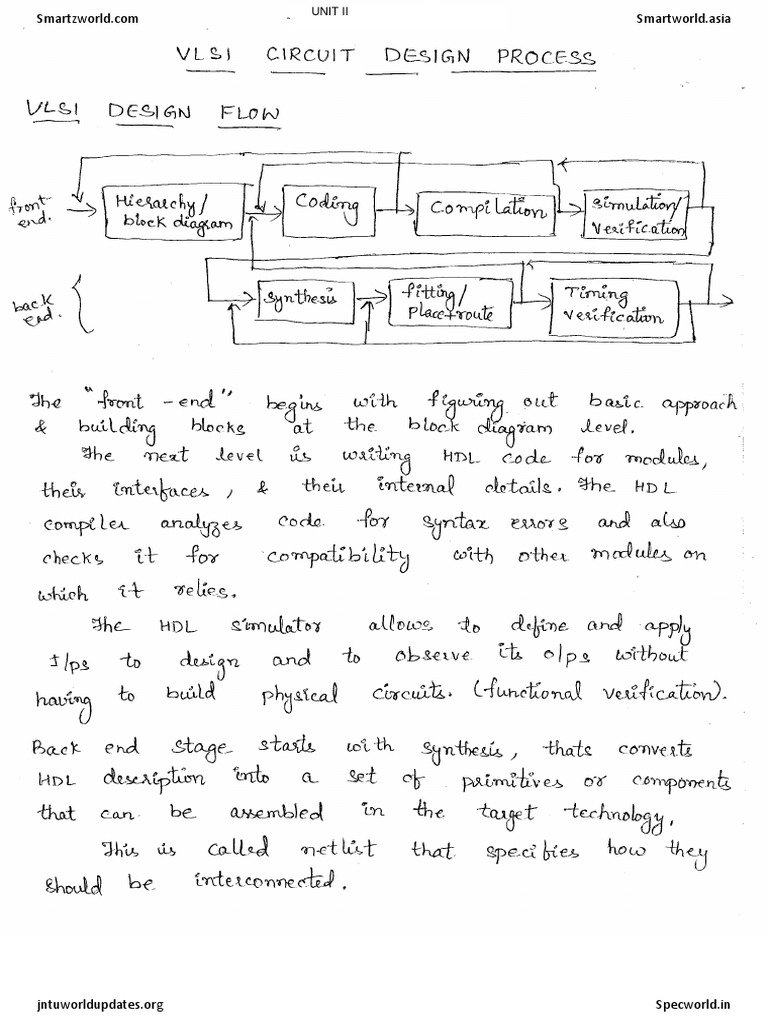 Smartzworld.com UNIT II Smartworld.asia
VLSI CIRCUIT DESIGN PROCESS
VLSI DESIGN FLOW
front end.
Hierarchy/ block diagram
Coding
Compilation
Simulation/ verification
back end.
Synthesis
fitting/ Place+route
Timing verification
The "front-end" begins with figuring out basic approach
& building blocks at the block diagram level.
The next level is writing HDL code for modules,
their interfaces, & their internal details. The HDL
compiler analyzes code for syntax errors and also
checks it for compatibility with other modules on
which it relies.
The HDL simulator allows to define and apply
I/ps to design and to observe its o/ps without
having to build physical circuits. (functional verification).
Back end stage starts with synthesis, thats converts
HDL description into a set of primitives or components
that can be assembled in the target technology.
This is called netlist that specifies how they
should be interconnected.
jntuworldupdates.org Specworld.in